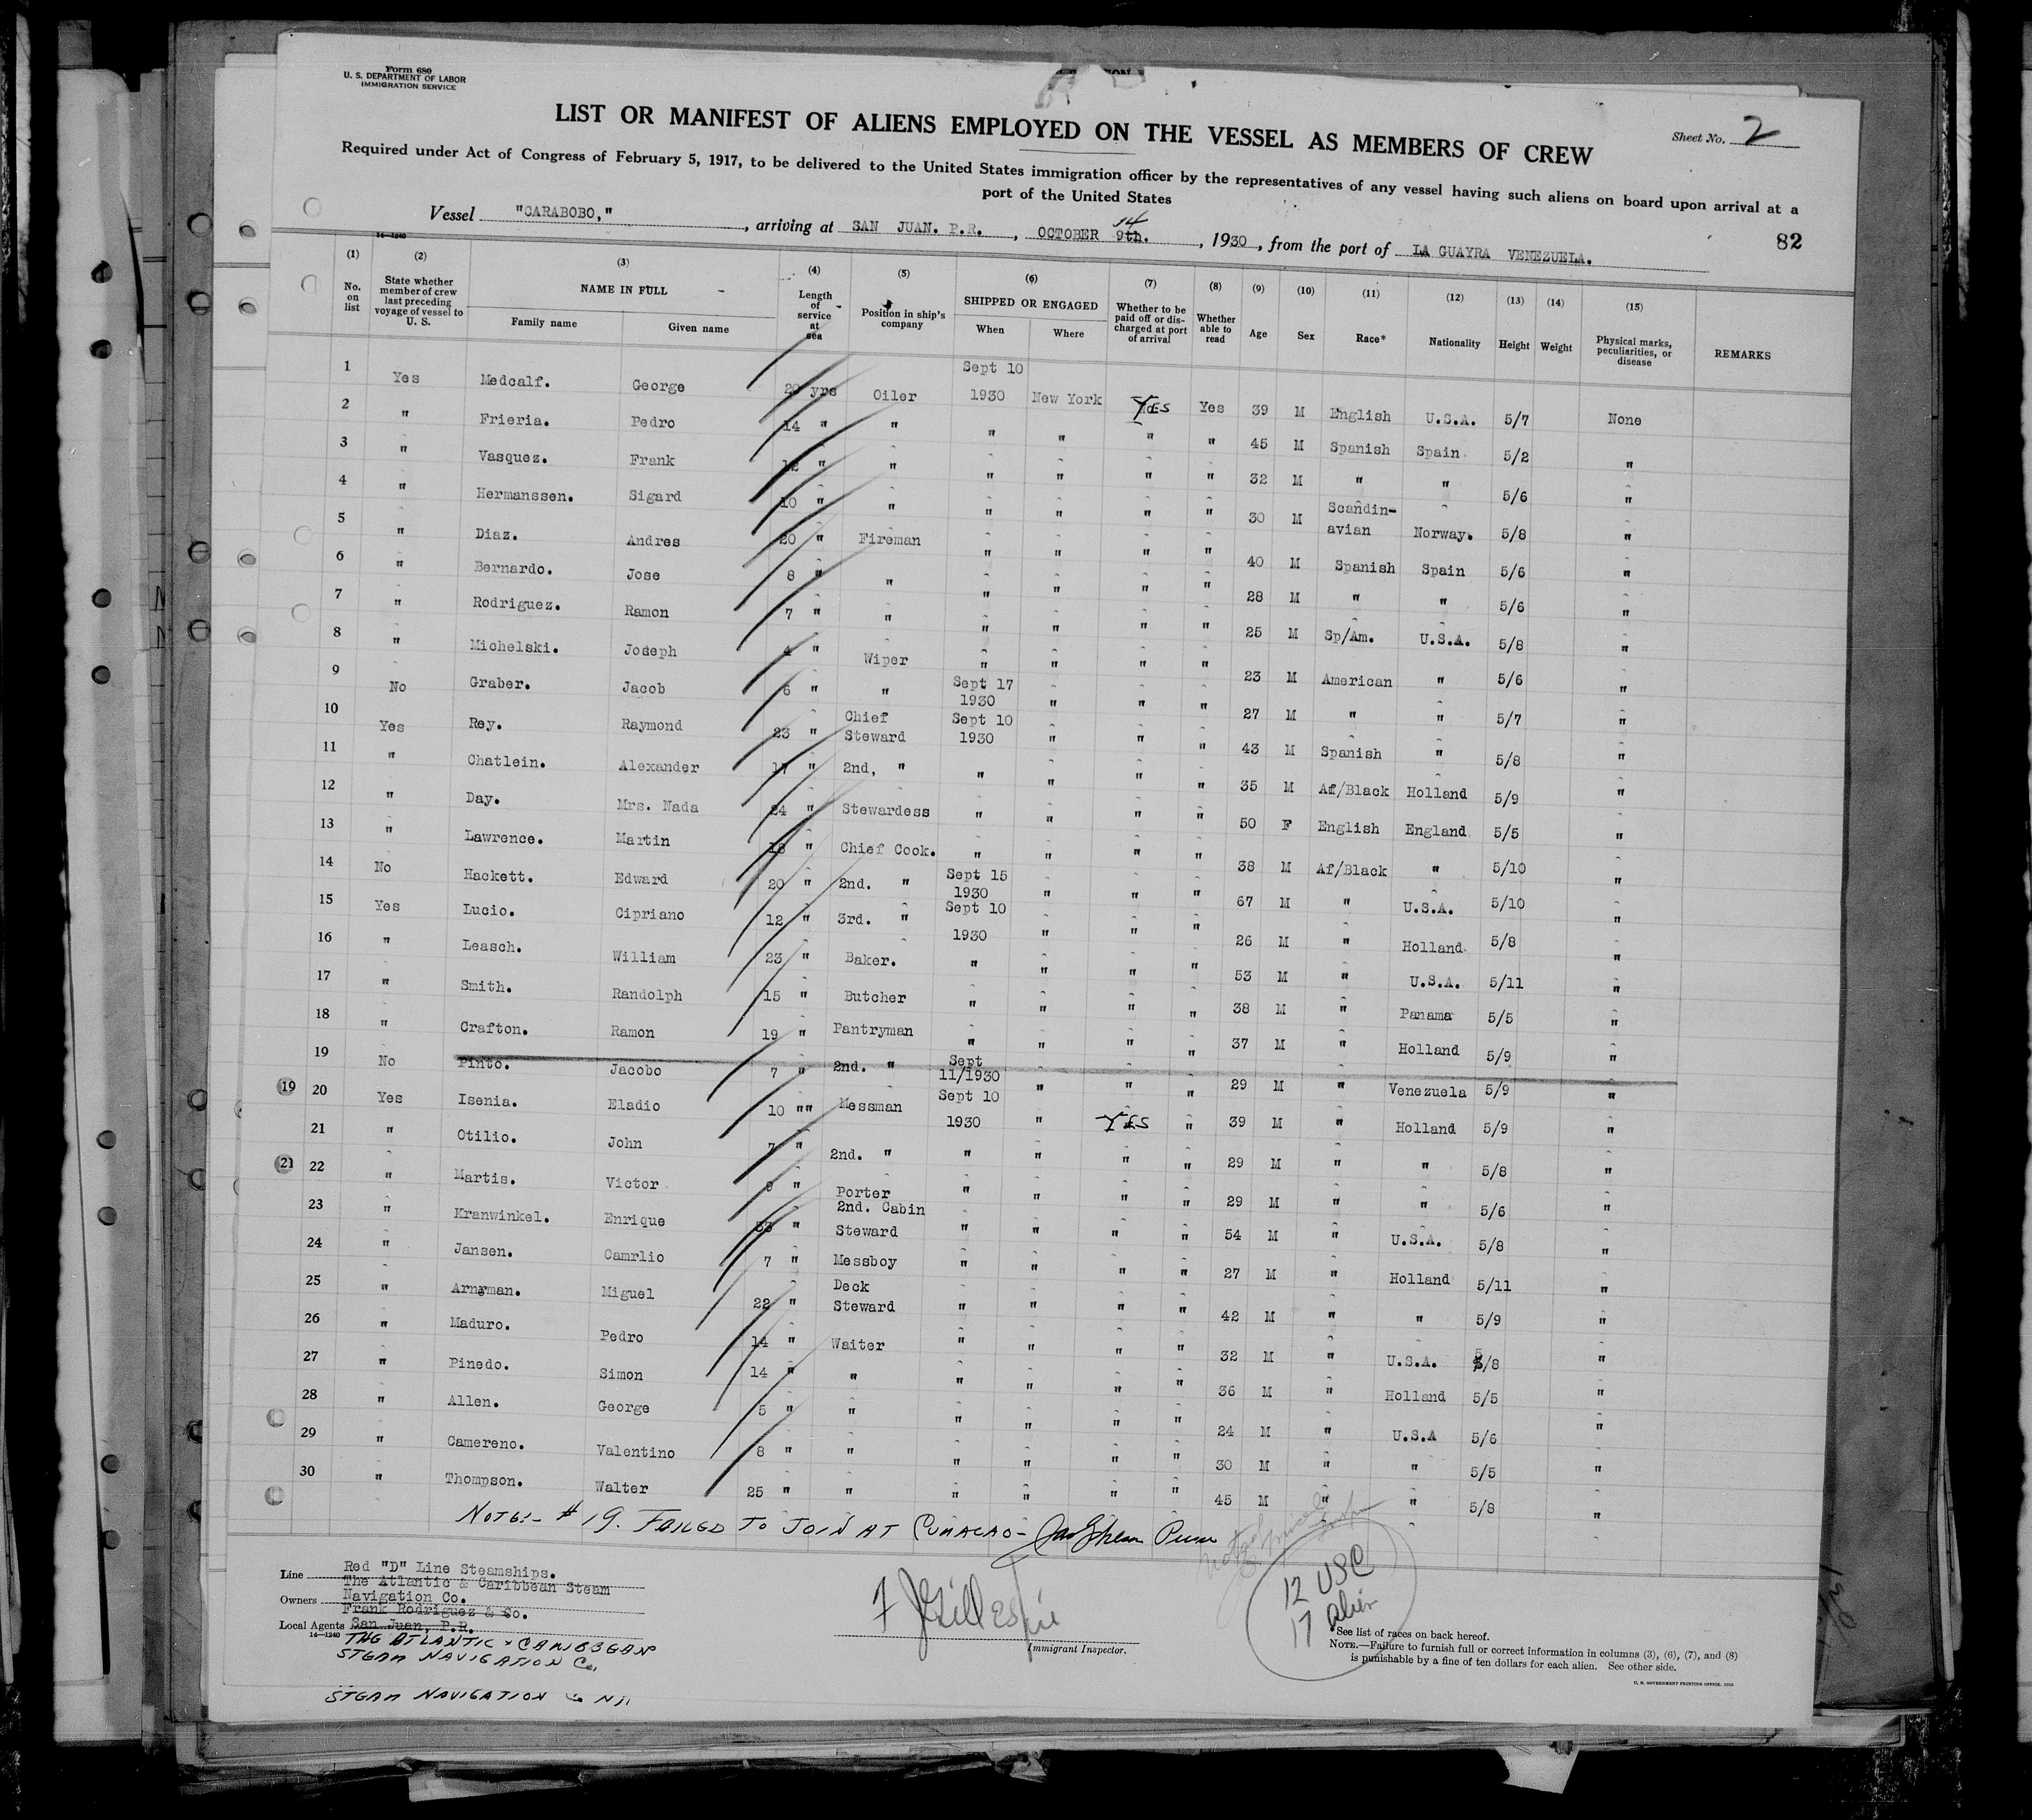 Form 680
U. S. DEPARTMENT OF LABOR
IMMIGRATION SERVICE
LIST OR MANIFEST OF ALIENS EMPLOYED ON THE VESSEL AS MEMBERS OF CREW
Sheet No. 2
Required under Act of Congress of February 5, 1917, to be delivered to the United States immigration officer by the representatives of any vessel having such aliens on board upon arrival at a
port of the United States
Vessel "CARABOBO," , arriving at SAN JUAN. P.R. , OCTOBER 9th. 14 , 1930 , from the port of LA GUAYRA VENEZUELA.
82
14—1240
(1) (2) (3) (4) (5) (6) (7) (8) (9) (10) (11) (12) (13) (14) (15)
No. on list State whether member of crew last preceding voyage of vessel to U. S. NAME IN FULL Family name Given name Length of service at sea Position in ship's company SHIPPED OR ENGAGED When Where Whether to be paid off or discharged at port of arrival Whether able to read Age Sex Race* Nationality Height Weight Physical marks, peculiarities, or disease REMARKS
1 Yes Medcalf. George 20 yrs Oiler Sept 10 1930 New York YES Yes 39 M English U.S.A. 5/7 None
2 " Frieria. Pedro 14 " " " " " " 45 M Spanish Spain 5/2 "
3 " Vasquez. Frank 12 " " " " " " 32 M " " 5/6 "
4 " Hermanssen. Sigard 10 " " " " " " 30 M Scandin-avian Norway. 5/8 "
5 " Diaz. Andres 20 " Fireman " " " " 40 M Spanish Spain 5/6 "
6 " Bernardo. Jose 8 " " " " " " 28 M " " 5/6 "
7 " Rodriguez. Ramon 7 " " " " " " 25 M Sp/Am. U.S.A. 5/8 "
8 " Michelski. Joseph 4 " Wiper " " " " 23 M American " 5/6 "
9 No Graber. Jacob 6 " " Sept 17 1930 " " " 27 M " " 5/7 "
10 Yes Rey. Raymond 23 " Chief Steward Sept 10 1930 " " " 43 M Spanish " 5/8 "
11 " Chatlein. Alexander 17 " 2nd, " " " " " 35 M Af/Black Holland 5/9 "
12 " Day. Mrs. Nada 24 " Stewardess " " " " 50 F English England 5/5 "
13 " Lawrence. Martin 18 " Chief Cook. " " " " 38 M Af/Black " 5/10 "
14 No Hackett. Edward 20 " 2nd. " Sept 15 1930 " " " 67 M " U.S.A. 5/10 "
15 Yes Lucio. Cipriano 12 " 3rd. " Sept 10 1930 " " " 26 M " Holland 5/8 "
16 " Leasch. William 23 " Baker. " " " " 53 M " U.S.A. 5/11 "
17 " Smith. Randolph 15 " Butcher " " " " 38 M " Panama 5/5 "
18 " Crafton. Ramon 19 " Pantryman " " " " 37 M " Holland 5/9 "
19 No Pinto. Jacobo 7 " 2nd. " Sept 11/1930 " " " 29 M " Venezuela 5/9 "
19 20 Yes Isenia. Eladio 10 "" Messman Sept 10 1930 " YES " 39 M " Holland 5/9 "
21 " Otilio. John 7 " 2nd. " " " " " 29 M " " 5/8 "
21 22 " Martis. Victor 9 " Porter " " " " 29 M " " 5/6 "
23 " Kranwinkel. Enrique 33 " 2nd. Cabin Steward " " " " 54 M " U.S.A. 5/8 "
24 " Jansen. Camrlio 7 " Messboy " " " " 27 M " Holland 5/11 "
25 " Arnyman. Miguel 22 " Deck Steward " " " " 42 M " " 5/9 "
26 " Maduro. Pedro 14 " Waiter " " " " 32 M " U.S.A. 5/8 "
27 " Pinedo. Simon 14 " " " " " " 36 M " Holland 5/5 "
28 " Allen. George 5 " " " " " " 24 M " U.S.A 5/6 "
29 " Camereno. Valentino 8 " " " " " " 30 M " " 5/5 "
30 " Thompson. Walter 25 " " " " " " 45 M " " 5/8 "
NOTE:- # 19. FAILED TO JOIN AT CURACAO-
Line Red "D" Line Steamships.
The Atlantic & Caribbean Steam
Owners Navigation Co.
Frank Rodriguez & Co.
Local Agents San Juan, P.R.
14—1240
THE ATLANTIC & CARIBBEAN
STEAM NAVIGATION Co.
STEAM NAVIGATION Co
F J Gillespie
Immigrant Inspector.
12 USC
17 alien
*See list of races on back hereof.
NOTE.—Failure to furnish full or correct information in columns (3), (6), (7), and (8)
is punishable by a fine of ten dollars for each alien. See other side.
U. S. GOVERNMENT PRINTING OFFICE